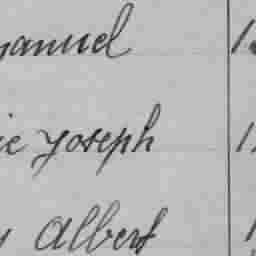 manuel
ie Joseph
y Albert